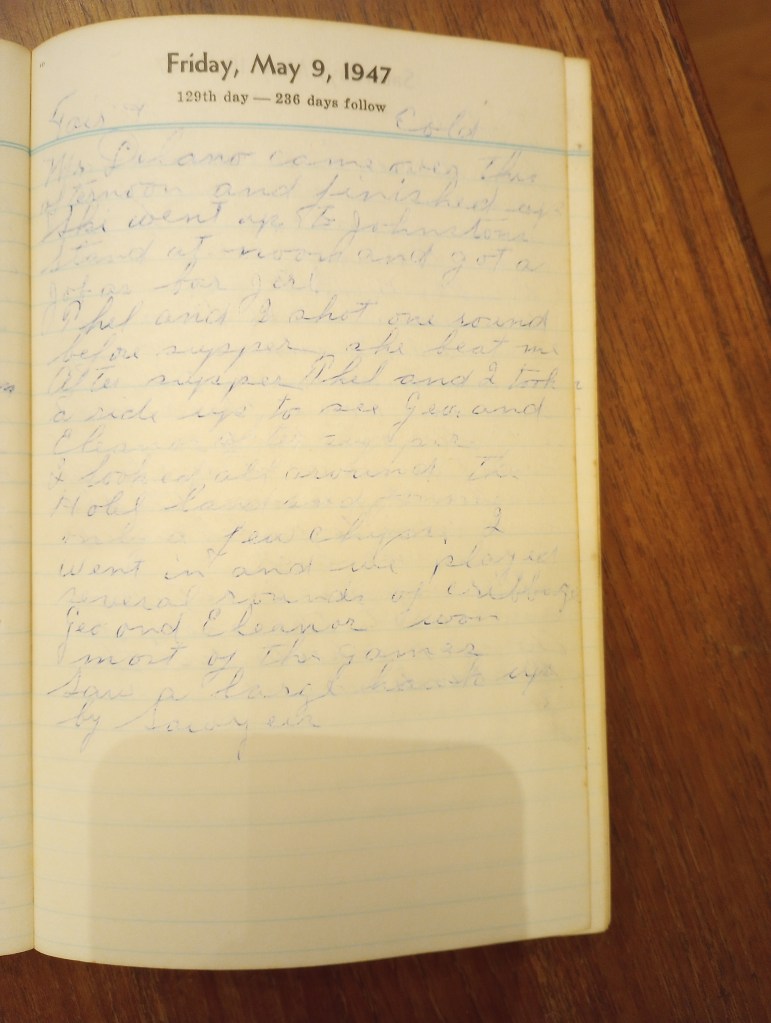 Friday, May 9, 1947
129th day — 236 days follow
Cold
Mr. Delano came over this
afternoon and finished up
She went up to Johnstons
Stand at noon and got a
for Jerl
Phel and I shot one round
before supper she beat me
After supper Phel and I took
a ride up to see Geo. and
Eleanor
I looked all around the
Hotel
only a few chips. I
went in and we played
several rounds of cribbage
Geo and Eleanor won
most of the games
Saw a large hawk up
by Sawyers